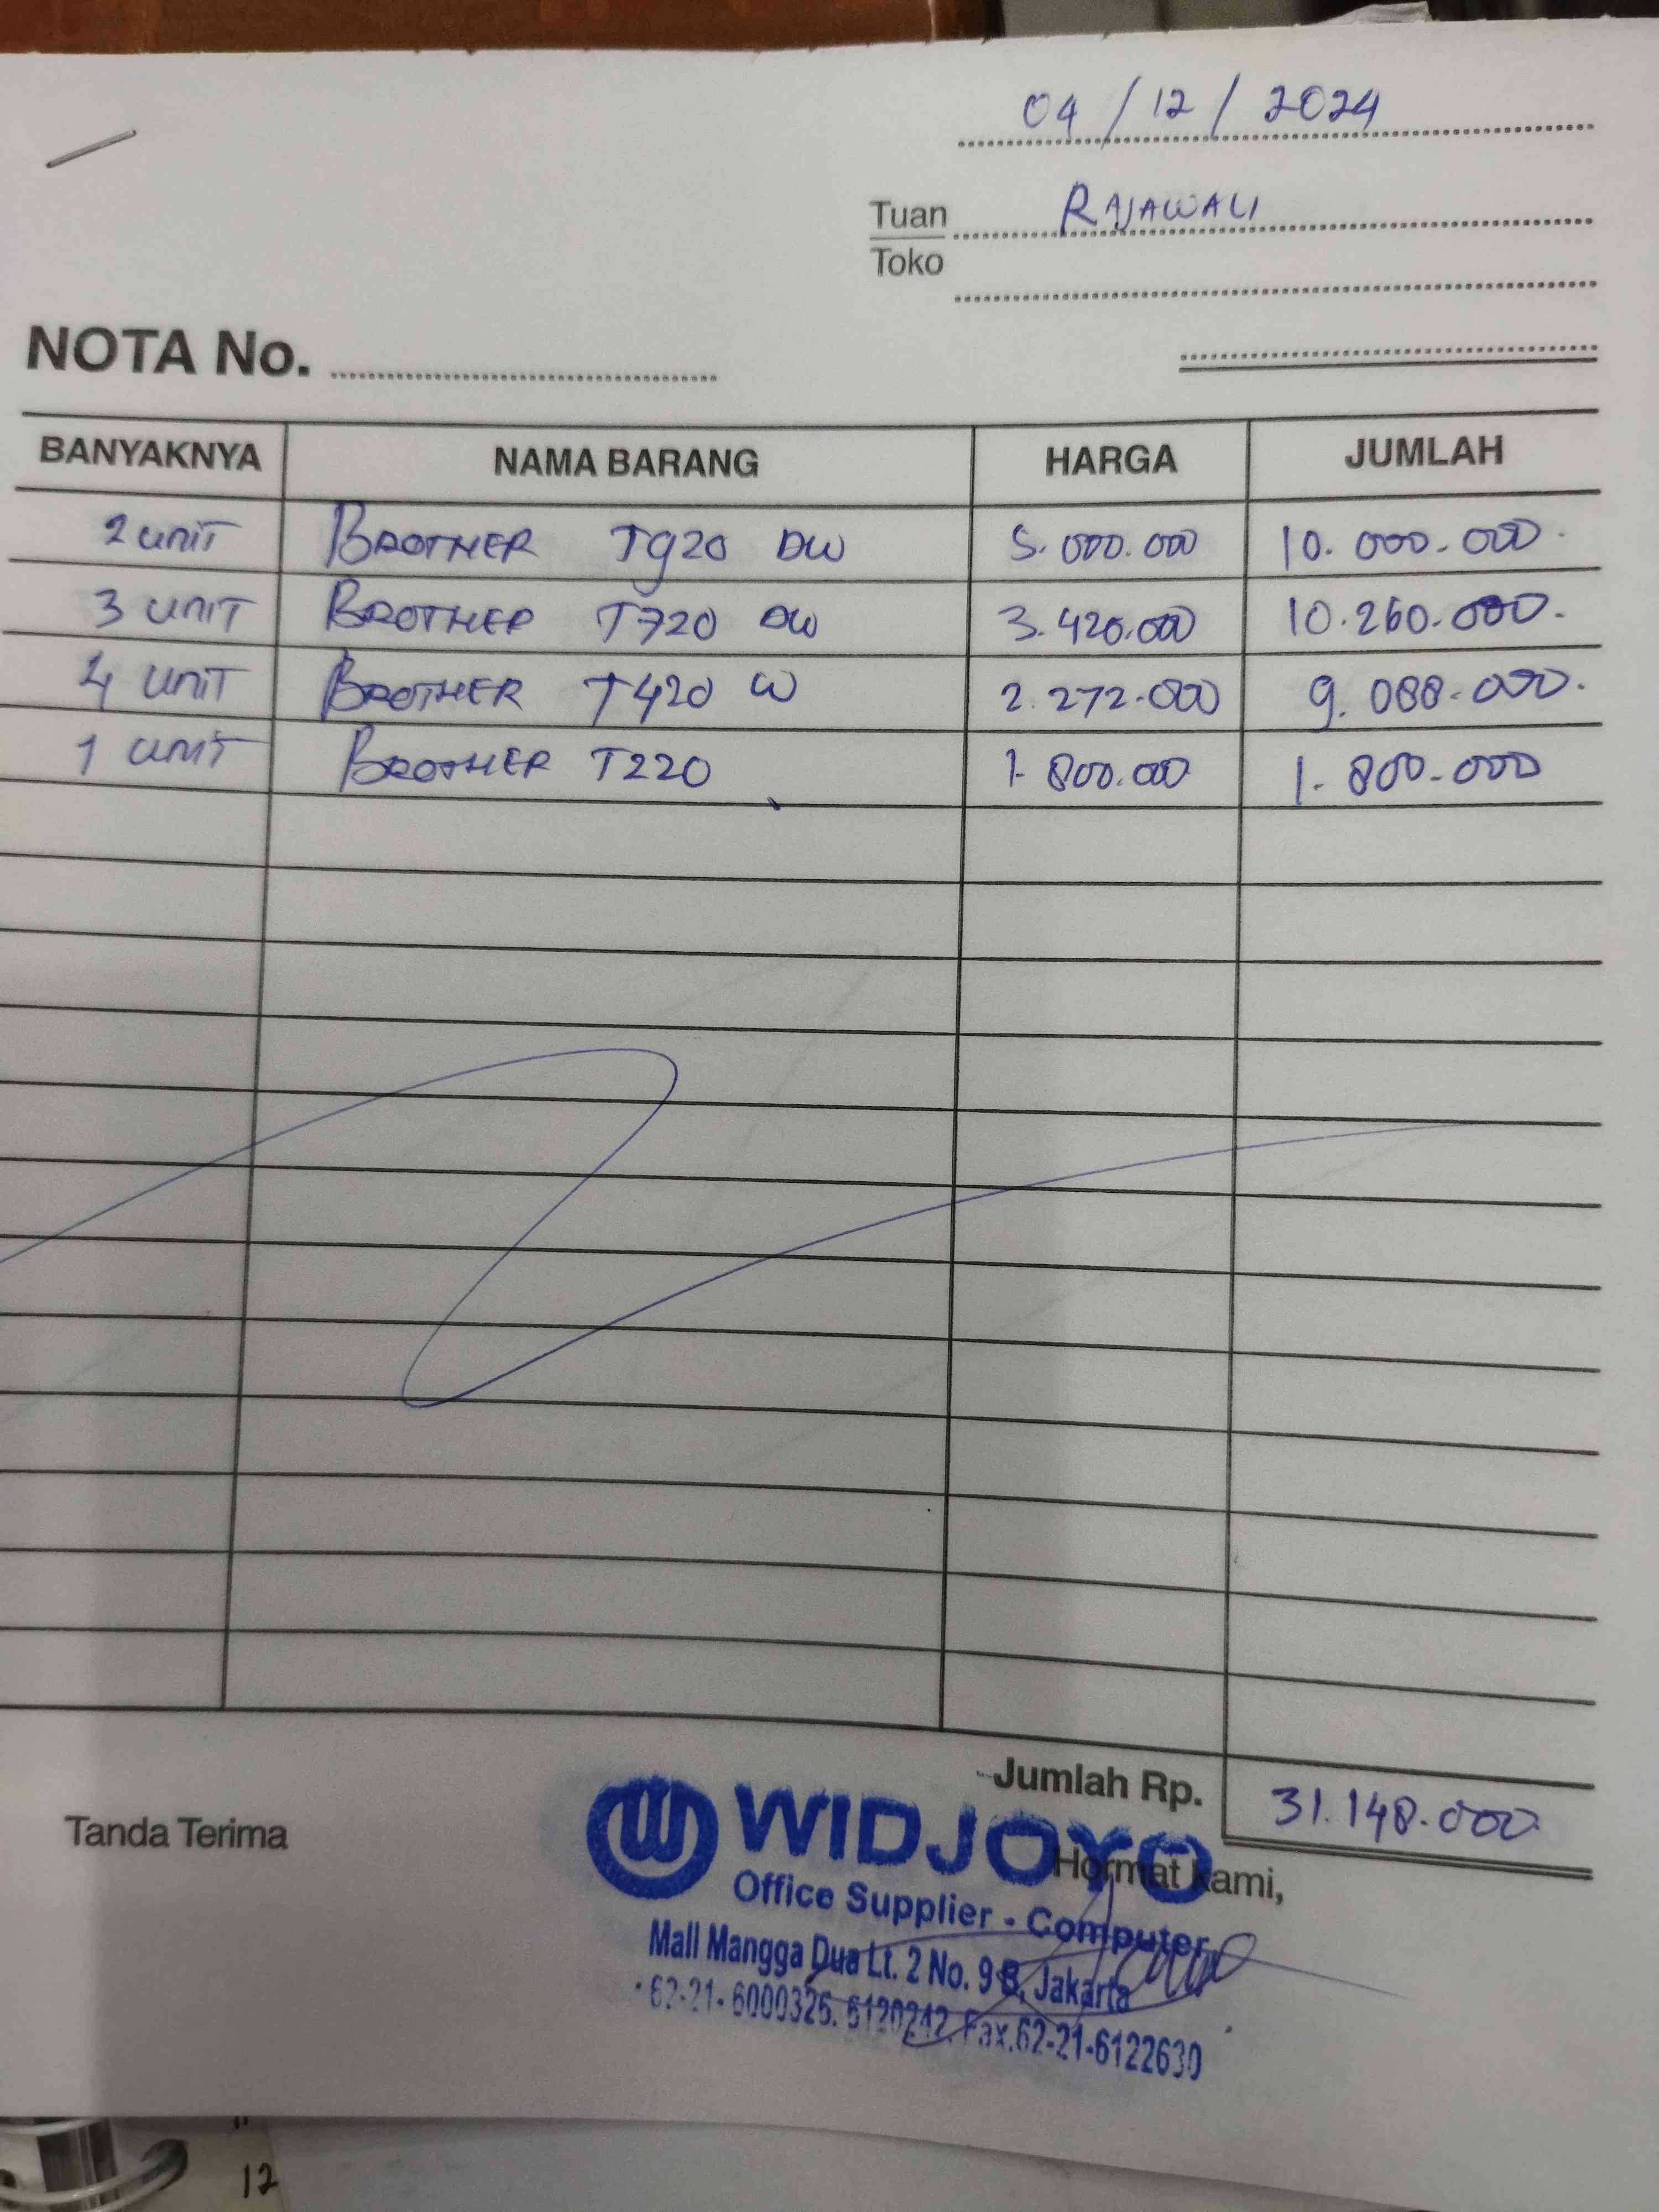 04 / 12 / 2024
Tuan RAJAWALI
Toko
NOTA No.
BANYAKNYA NAMA BARANG HARGA JUMLAH
2 UNIT BROTHER T920 DW 5.000.000 10.000.000.
3 UNIT BROTHER T720 DW 3.420.000 10.260.000.
4 UNIT BROTHER T420 W 2.272.000 9.088.000.
1 UNIT BROTHER T220 1.800.000 1.800.000
Jumlah Rp. 31.148.000
Tanda Terima
Hormat Kami,
WIDJOYO
Office Supplier - Computer
Mall Mangga Dua Lt. 2 No. 9 B, Jakarta
62-21-6000326. 6120242. Fax.62-21-6122630
12